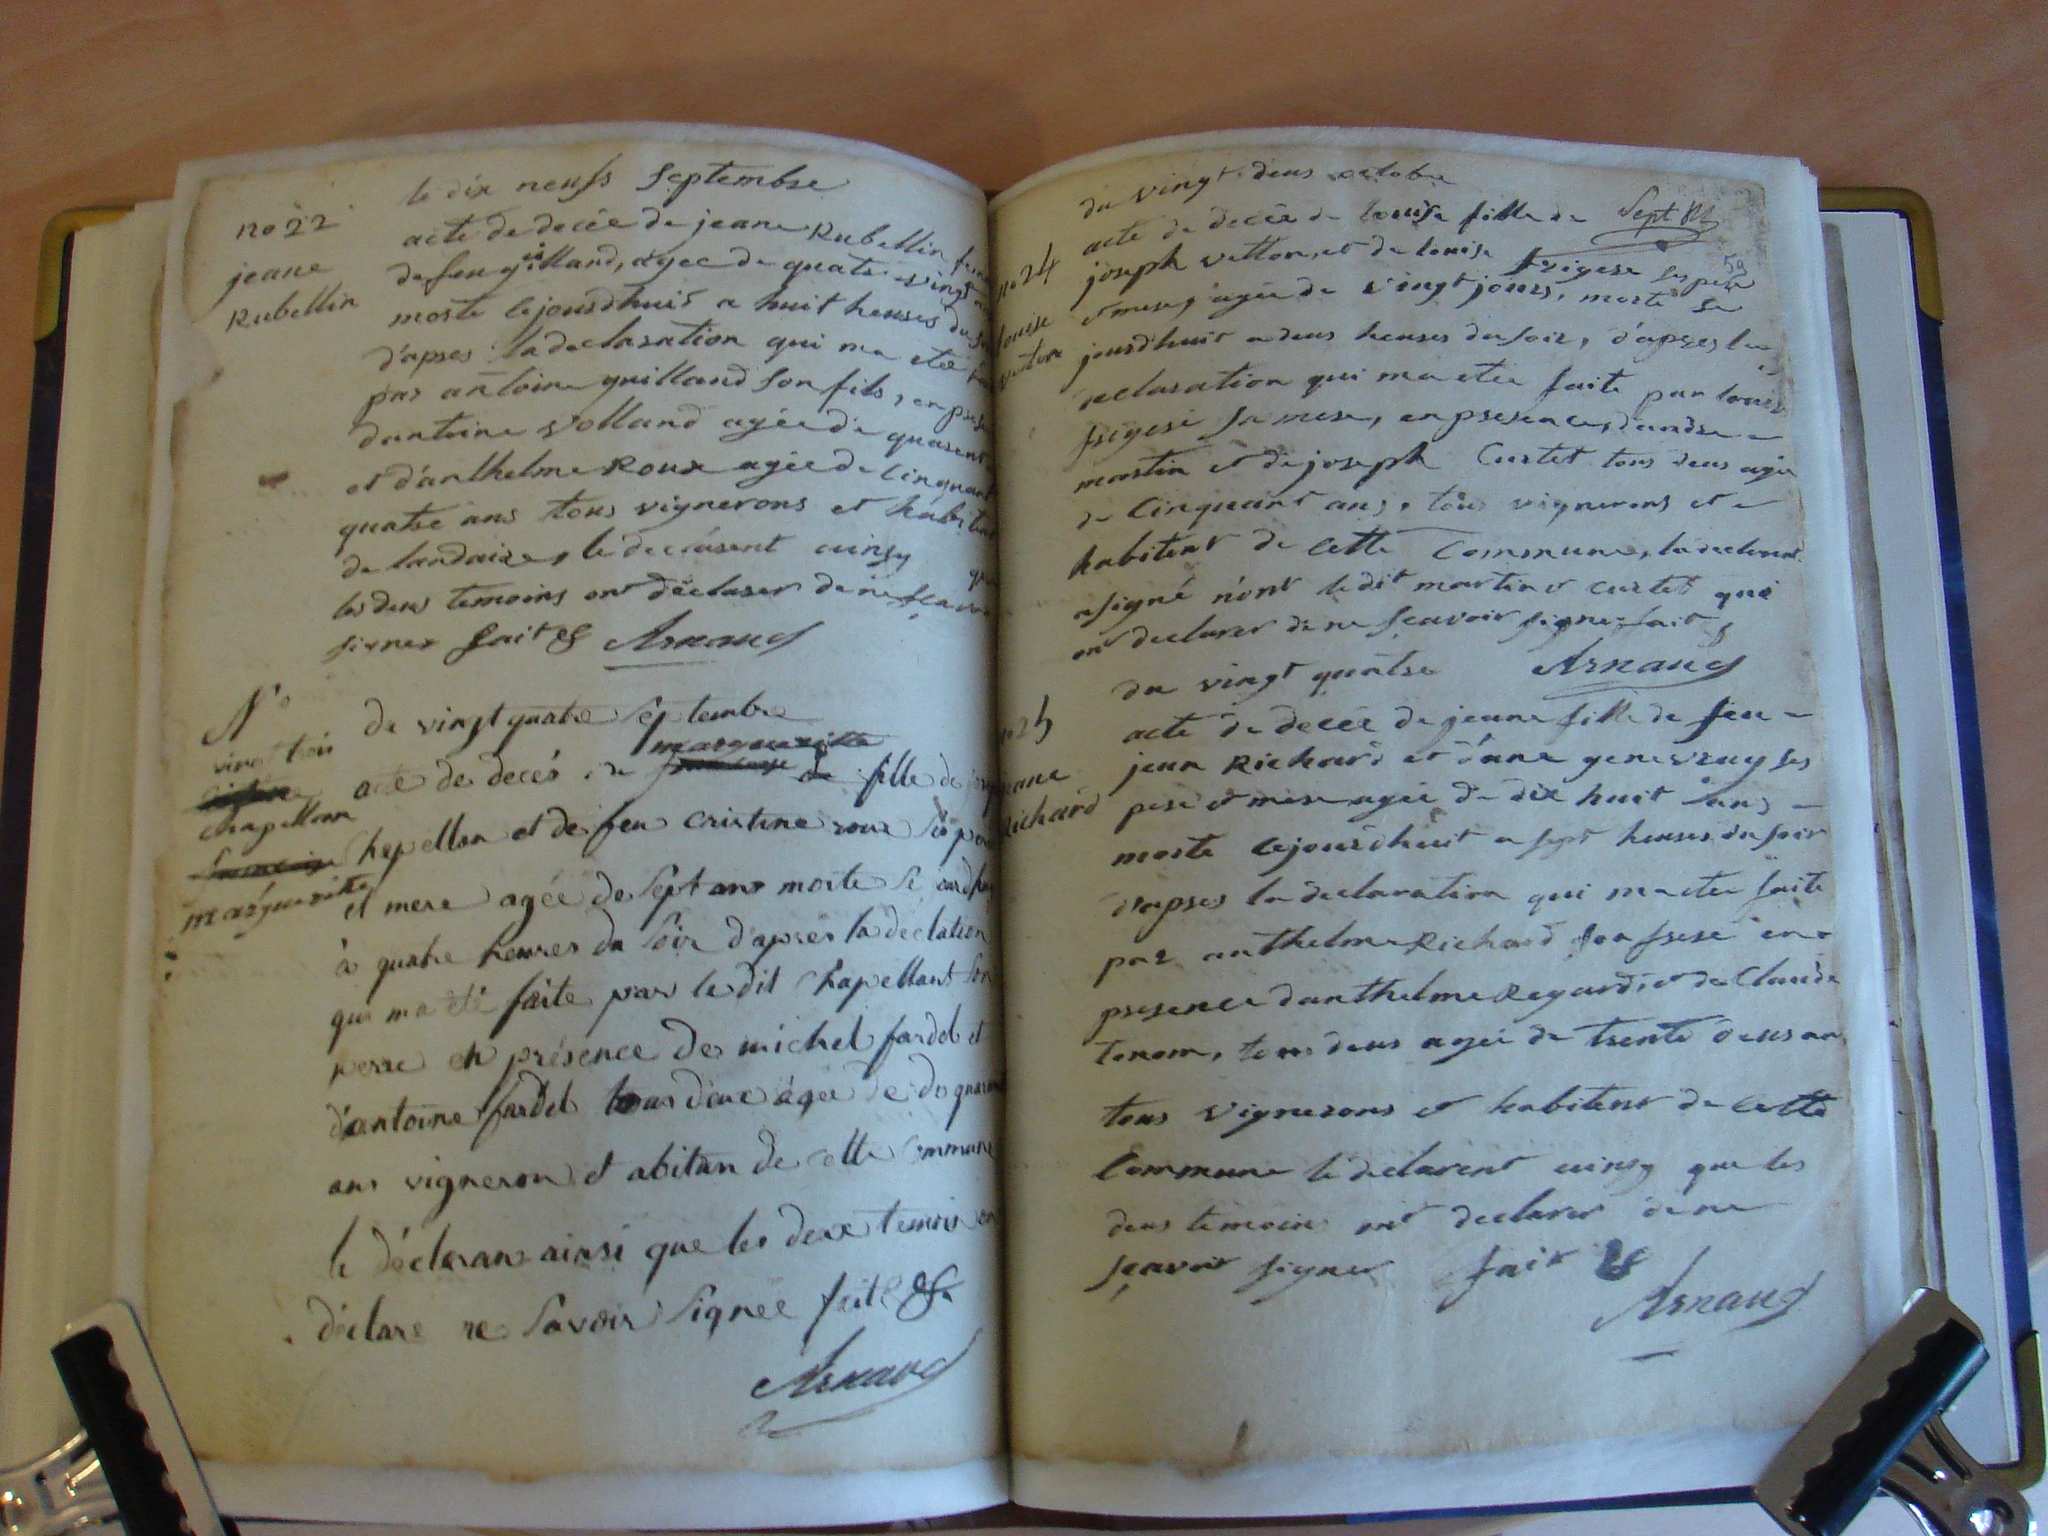 no 22
jeane
Rubellin
le dix neufs Septembre
acte de decée de jeane Rubellin
de feu guilland, agee de quatre vingt
morte cejourdhuit a huit heures du
d'apres la declaration qui ma etée
par antoine guilland son fils, en
dantoine Volland agée de quarent
et d'anthelme Roux agée de cinquant
quatre ans tous vignerons et habitent
de landaize, le decclarent ainsy que
les deus temoins ont déclarer de ne sçavoir
signer fait & Arnaud
N°
vingt trois
chapellon
margueritte
de vingt quatre Septembre
marguerite
acte de decés de fille de
Chapellon et de feu cristine roux Sés
et mere agée de Sept ans morte
à quatre heures du Soir d'après la déclation
qui ma été faite par le dit Chapellant Son
perre en présence de michel fardel et
d'antoine fardel tous deux agée de
ans vigneron et abitan de cette Commune
le déclaran ainsi que les deux temoin on
déclaré ne Savoir Signée fait &
Arnaud
du vingt deus octobre
Sept
59
no 24
louise
vetton
acte de decée de louise fille de
joseph vetton, et de louise frigere ses pere
et mere, agée de vingt jours, morte se
jourdhuit a deus heures du soir, d'apres la
declaration qui ma etée faite par louise
frigere sa mere, en presence, dandre
martin et de joseph Curtet tous deus agée
de Cinquant ans, tous vignerons et
habitent de cette Commune, la declarent
a signé n'ont ledit martin et curtet qui
ont declarer de ne sçavoir signer fait &
Arnaud
du vingt quatre
no 25
jeane
Richard
acte de decée de jeane fille de feu
jean Richard et d'ane genevray ses
pere et mere agée de dix huit ans
morte cejourdhuit a sept heures du soir
d'apres la declaration qui ma etée faite
par anthelme Richard son frere en
presence danthelme Regard, et de Claude
tenom, tous deus agée de trente deus ans
tous vignerons et habitent de cette
Commune le declarent ainsy que les
deus temoins ont declarer de ne
sçavoir signer fait &
Arnaud